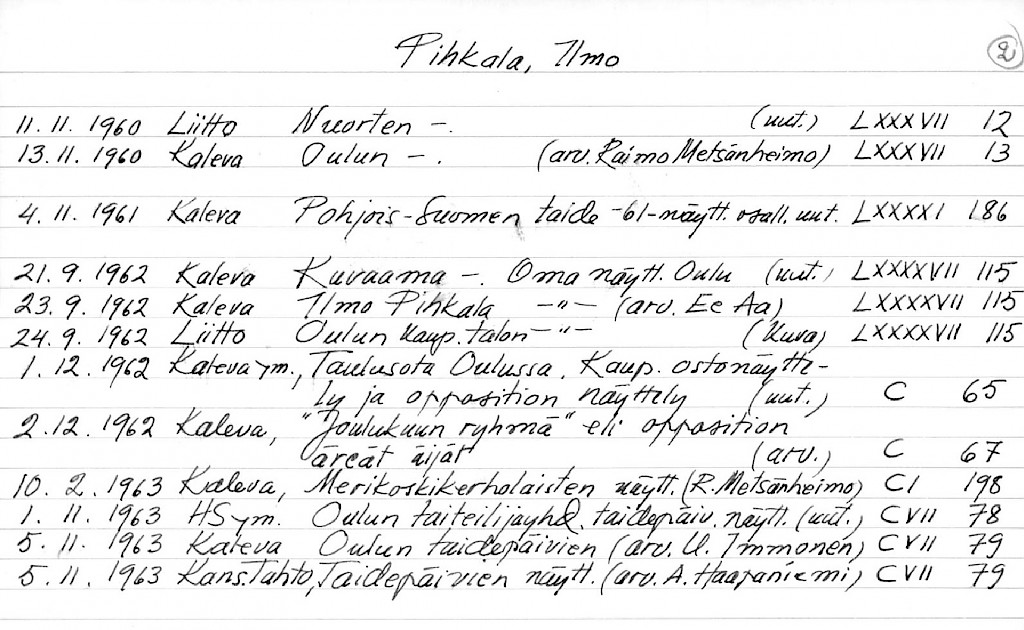 Pihkala, Ilmo 2
11.11.1960 Liitto Nuorten -. (uut.) LXXXVII 12
13.11.1960 Kaleva Oulun -. (arv. Raimo Metsänheimo) LXXXVII 13
4.11.1961 Kaleva Pohjois-Suomen taide -61-näytt. osall. uut. LXXXXI 186
21.9.1962 Kaleva Kuvaama -. Oma näytt. Oulu (uut.) LXXXXVII 115
23.9.1962 Kaleva Ilmo Pihkala -"- (arv. Ee Aa) LXXXXVII 115
24.9.1962 Liitto Oulun kaup.talon -"- (kuva) LXXXXVII 115
1.12.1962 Kaleva ym., Taulusota Oulussa. Kaup. ostonäytte-
ly ja opposition näyttely (uut.) C 65
2.12.1962 Kaleva, "Joulukuun ryhmä" eli opposition
äreät äijät (arv.) C 67
10.2.1963 Kaleva, Merikoskikerholaisten näytt. (R. Metsänheimo) CI 198
1.11.1963 HS ym. Oulun taiteilijayhd. taidepäiv. näytt. (uut.) CVII 78
5.11.1963 Kaleva Oulun taidepäivien (arv. U. Immonen) CVII 79
5.11.1963 Kans.Tahto, Taidepäivien näytt. (arv. A. Haapaniemi) CVII 79